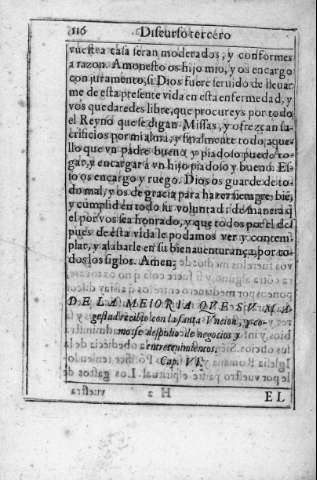 116 Discurso tercero
vuestra casa seran moderados, y conformes
a razon. Amonesto os hijo mio, y os encargo
con juramento, si Dios fuere seruido de lleuar
me de esta presente vida en esta enfermedad, y
vos quedaredes libre, que procureys por todo
el Reyno que se digan Missas, y ofrezcan sa-
crificios por mi alma, y finalmente todo, aque-
llo que vn padre bueno, y piadoso puede ro-
gar, y encargar a vn hijo piadoso y bueno. Es-
so os encargo y ruego. Dios os guarde de to-
do mal, y os de gracia para hazer siempre bié,
y cumplid en todo su voluntad: de manera q̃
el por vos sea honrado, y que todos por el des
pues de esta vida le podamos ver y contem-
plar, y alabarle en su bienauenturança, por to-
dos los siglos. Amen.
DE LA MEIORIA QVE SV MA
gestad recibio con la santa Vncion, y co-
mo se despidio de negocios y
entretenimientos.
Cap. VI.
H 2
EL